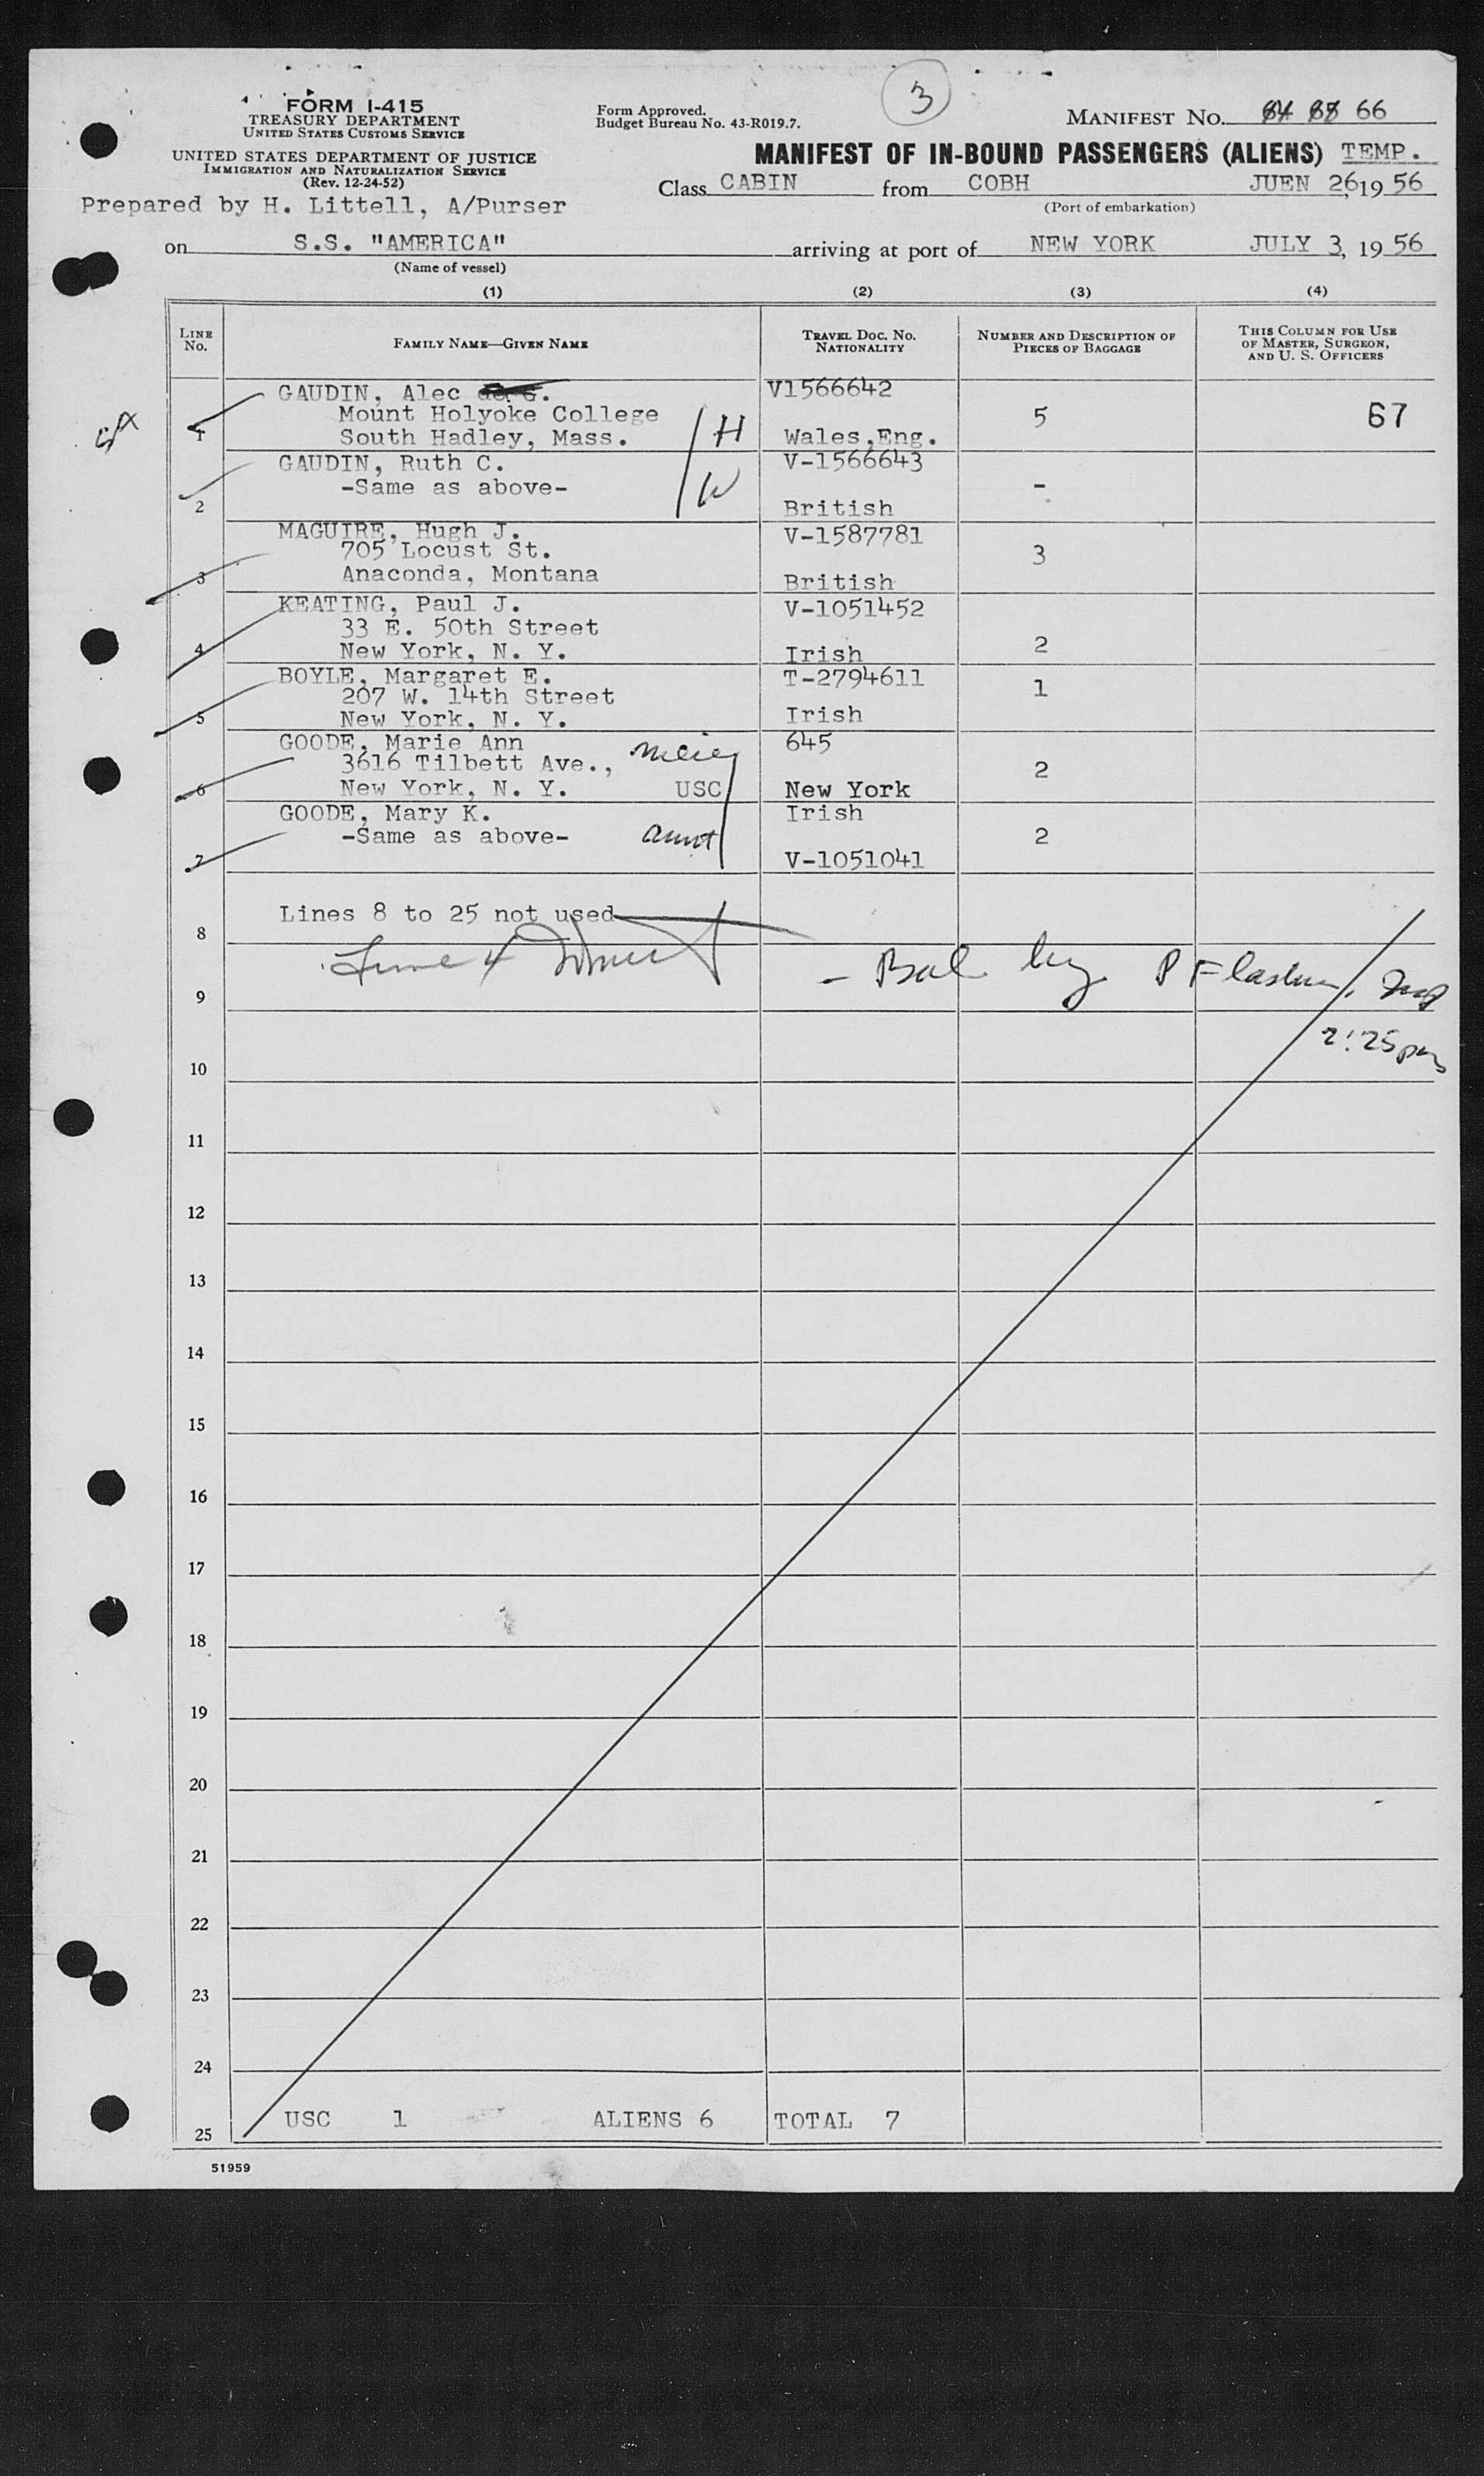 3
FORM I-415
TREASURY DEPARTMENT
UNITED STATES CUSTOMS SERVICE
UNITED STATES DEPARTMENT OF JUSTICE
IMMIGRATION AND NATURALIZATION SERVICE
(Rev. 12-24-52)
Form Approved.
Budget Bureau No. 43-R019.7.
MANIFEST NO. 66
MANIFEST OF IN-BOUND PASSENGERS (ALIENS) TEMP.
Class CABIN from COBH JUEN 26, 19 56
(Port of embarkation)
Prepared by H. Littell, A/Purser
on S.S. "AMERICA" arriving at port of NEW YORK JULY 3, 19 56
(Name of vessel)
(1) (2) (3) (4)
LINE No.
FAMILY NAME—GIVEN NAME
TRAVEL DOC. NO. NATIONALITY
NUMBER AND DESCRIPTION OF PIECES OF BAGGAGE
THIS COLUMN FOR USE OF MASTER, SURGEON, AND U. S. OFFICERS
1 GAUDIN, Alec V1566642
Mount Holyoke College 5 67
South Hadley, Mass. H Wales,Eng.
2 GAUDIN, Ruth C. V-1566643
-Same as above- W -
British
3 MAGUIRE, Hugh J. V-1587781
705 Locust St. 3
Anaconda, Montana British
4 KEATING, Paul J. V-1051452
33 E. 50th Street 2
New York, N. Y. Irish
5 BOYLE, Margaret E. T-2794611
207 W. 14th Street 1
New York, N. Y. Irish
6 GOODE, Marie Ann 645
3616 Tilbett Ave., 2
New York, N. Y. USC New York
7 GOODE, Mary K. Irish
-Same as above- aunt 2
V-1051041
Lines 8 to 25 not used
8
- Bal by P
9
2:25pm
10
11
12
13
14
15
16
17
18
19
20
21
22
23
24
25 USC 1 ALIENS 6 TOTAL 7
51959